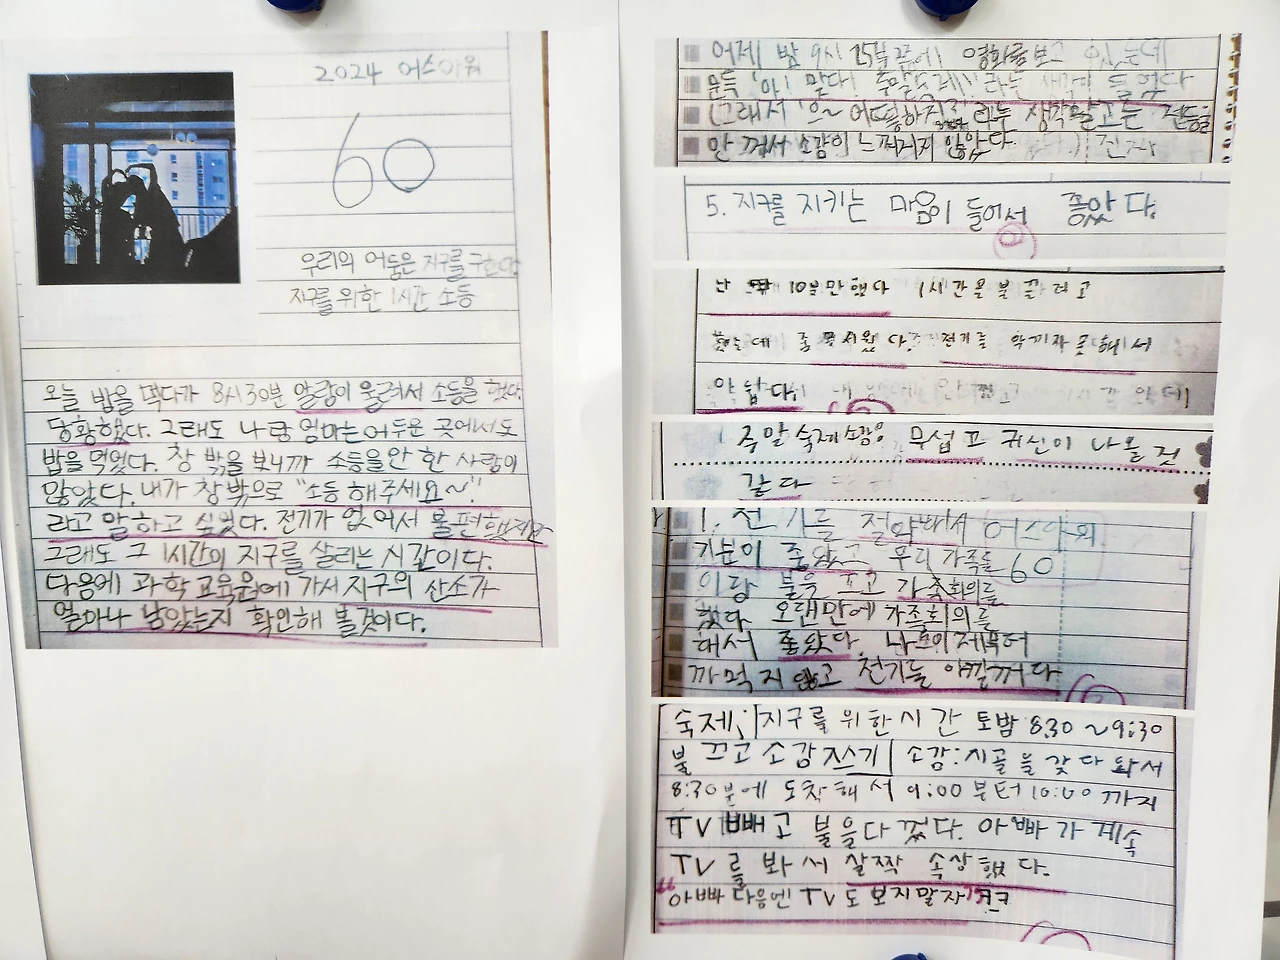 2024 어스아워
60
우리의 어둠은 지구를 구한다
지구를 위한 1시간 소등
오늘 밥을 먹다가 8시30분 알람이 울려서 소등을 했다.
당황했다. 그래도 나랑 엄마는 어두운 곳에서도
밥을 먹었다. 창 밖을 보니까 소등을 안 한 사람이
많았다. 내가 창 밖으로 "소등 해주세요~!"
라고 말하고 싶었다. 전기가 없어서 불편했지만
그래도 그 1시간이 지구를 살리는 시간이다.
다음에 과학 교육원에 가서 지구의 산소가
얼마나 남았는지 확인해 볼것이다.
어제 밤 9시 25분쯤에 영화를 보고 있는데
문득 '아! 맞다! 주말숙제!' 라는 생각이 들었다
(그래서 '으~ 어떡하지? 라는 생각말고는 전등을
안 꺼서 소감이 느껴지지 않았다.
5. 지구를 지키는 마음이 들어서 좋았다.
난 10분만했다 1시간을 불 끌려고
했는데 전기를
주말숙제소감은 무섭고 귀신이 나올 것
같다
1. 전기를 절약해서 어스아워
기분이 좋았고 우리 가족들 60
이랑 불을 끄고 가족회의를
했다 오랜만에 가족회의를
해서 좋았다. 나는 이제부터
까먹지 않고 전기를 아낄꺼다
숙제: 지구를 위한 시간 토밤 8:30 ~ 9:30
불 끄고 소감쓰기 소감: 시골을 갔다 와서
8:30분에 도착해서 9:00부터 10:00까지
TV 빼고 불을 다 껐다. 아빠가 계속
TV를 봐서 살짝 속상했다.
"아빠 다음엔 TV도 보지말자!"